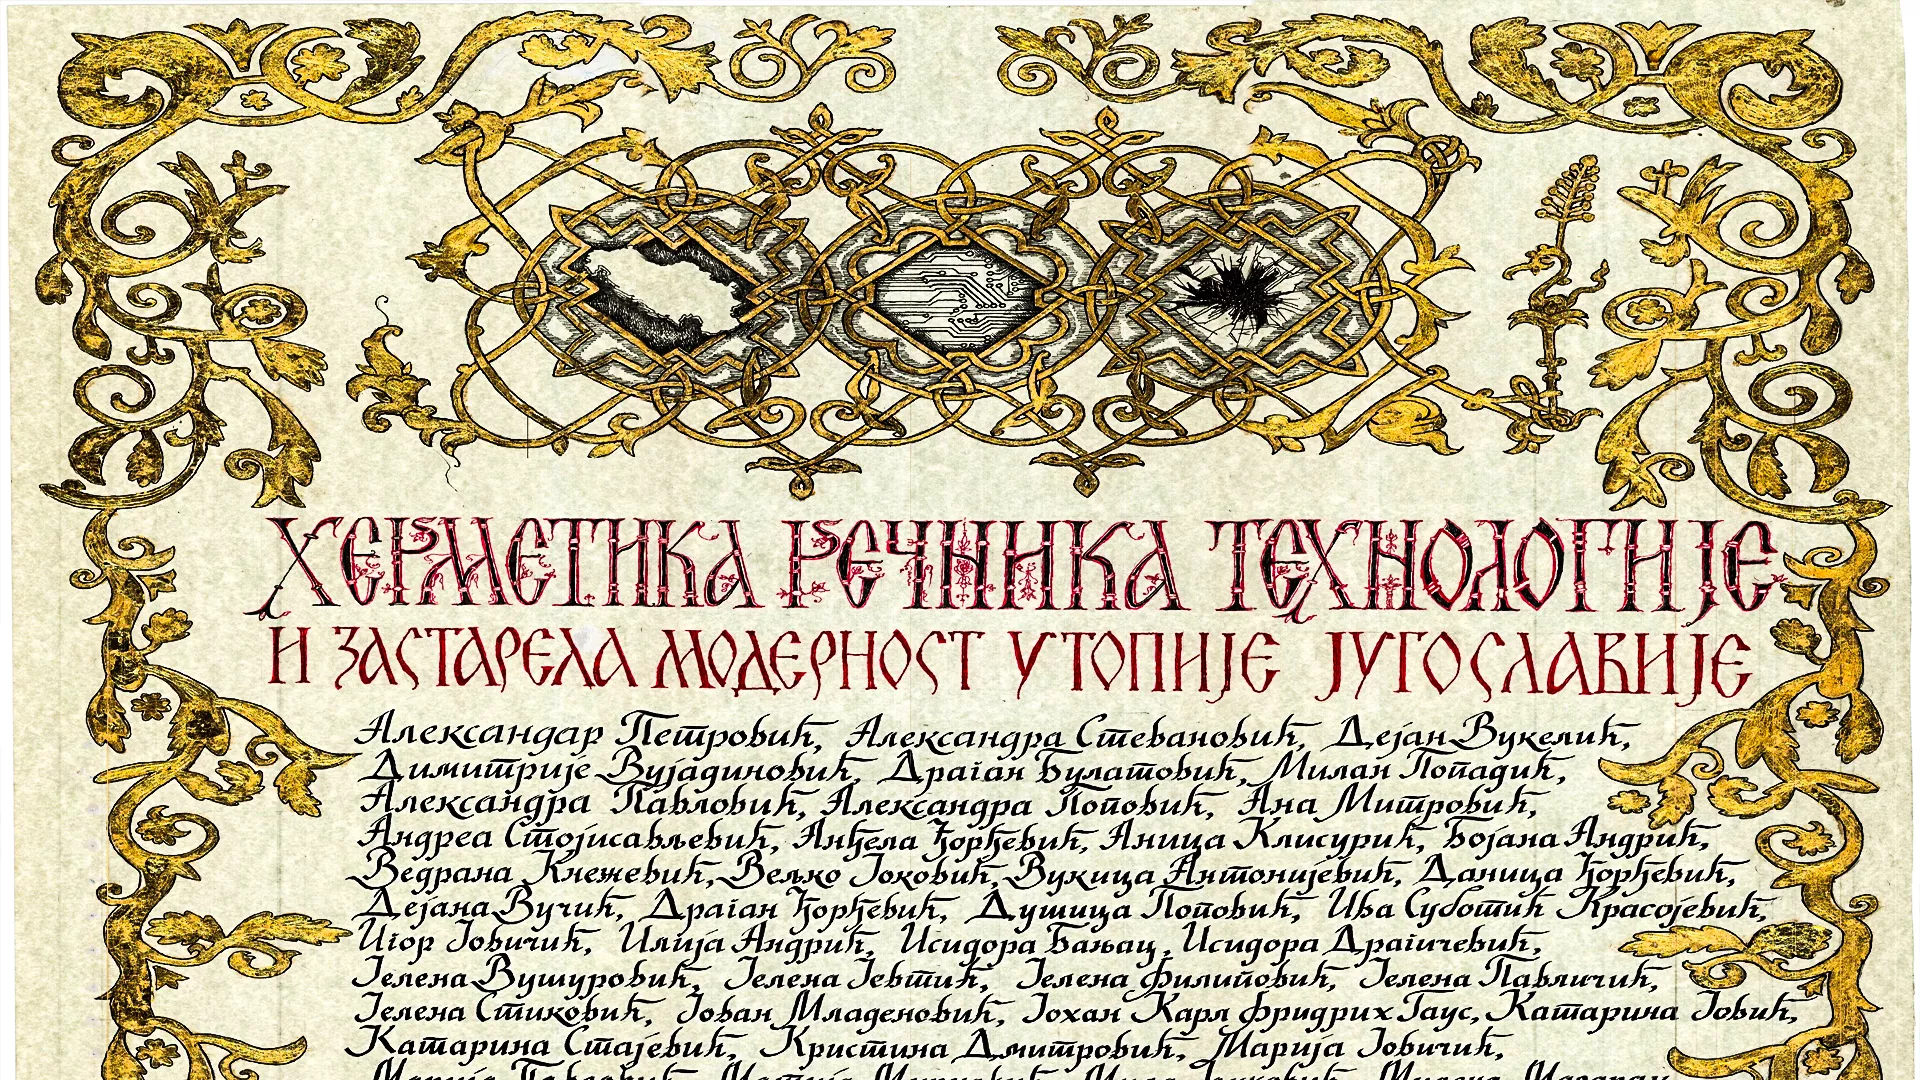 ХЕРМЕТИКА РЕЧНИКА ТЕХНОЛОГИЈЕ
И ЗАСТАРЕЛА МОДЕРНОСТ УТОПИЈЕ ЈУГОСЛАВИЈЕ
Александар Петровић, Александра Стевановић, Дејан Вукелић,
Димитрије Вујадиновић, Драган Булатовић, Милан Попадић,
Александра Павловић, Александра Поповић, Ана Митровић,
Андреа Стојисављевић, Анђела Ђорђевић, Аница Клисурић, Бојана Андрић,
Ведрана Кнежевић, Вељко Јоковић, Вукица Антонијевић, Даница Ђорђевић,
Дејана Вучић, Драган Ђорђевић, Душица Поповић, Ива Суботић Красојевић,
Игор Јовичић, Илија Андрић, Исидора Бањац, Исидора Драгичевић,
Јелена Вушуровић, Јелена Јевтић, Јелена Филиповић, Јелена Павличић,
Јелена Стиковић, Јован Младеновић, Јохан Карл Фридрих Гаус, Катарина Јовић,
Катарина Стајевић, Кристина Дмитровић, Марија Јовичић,